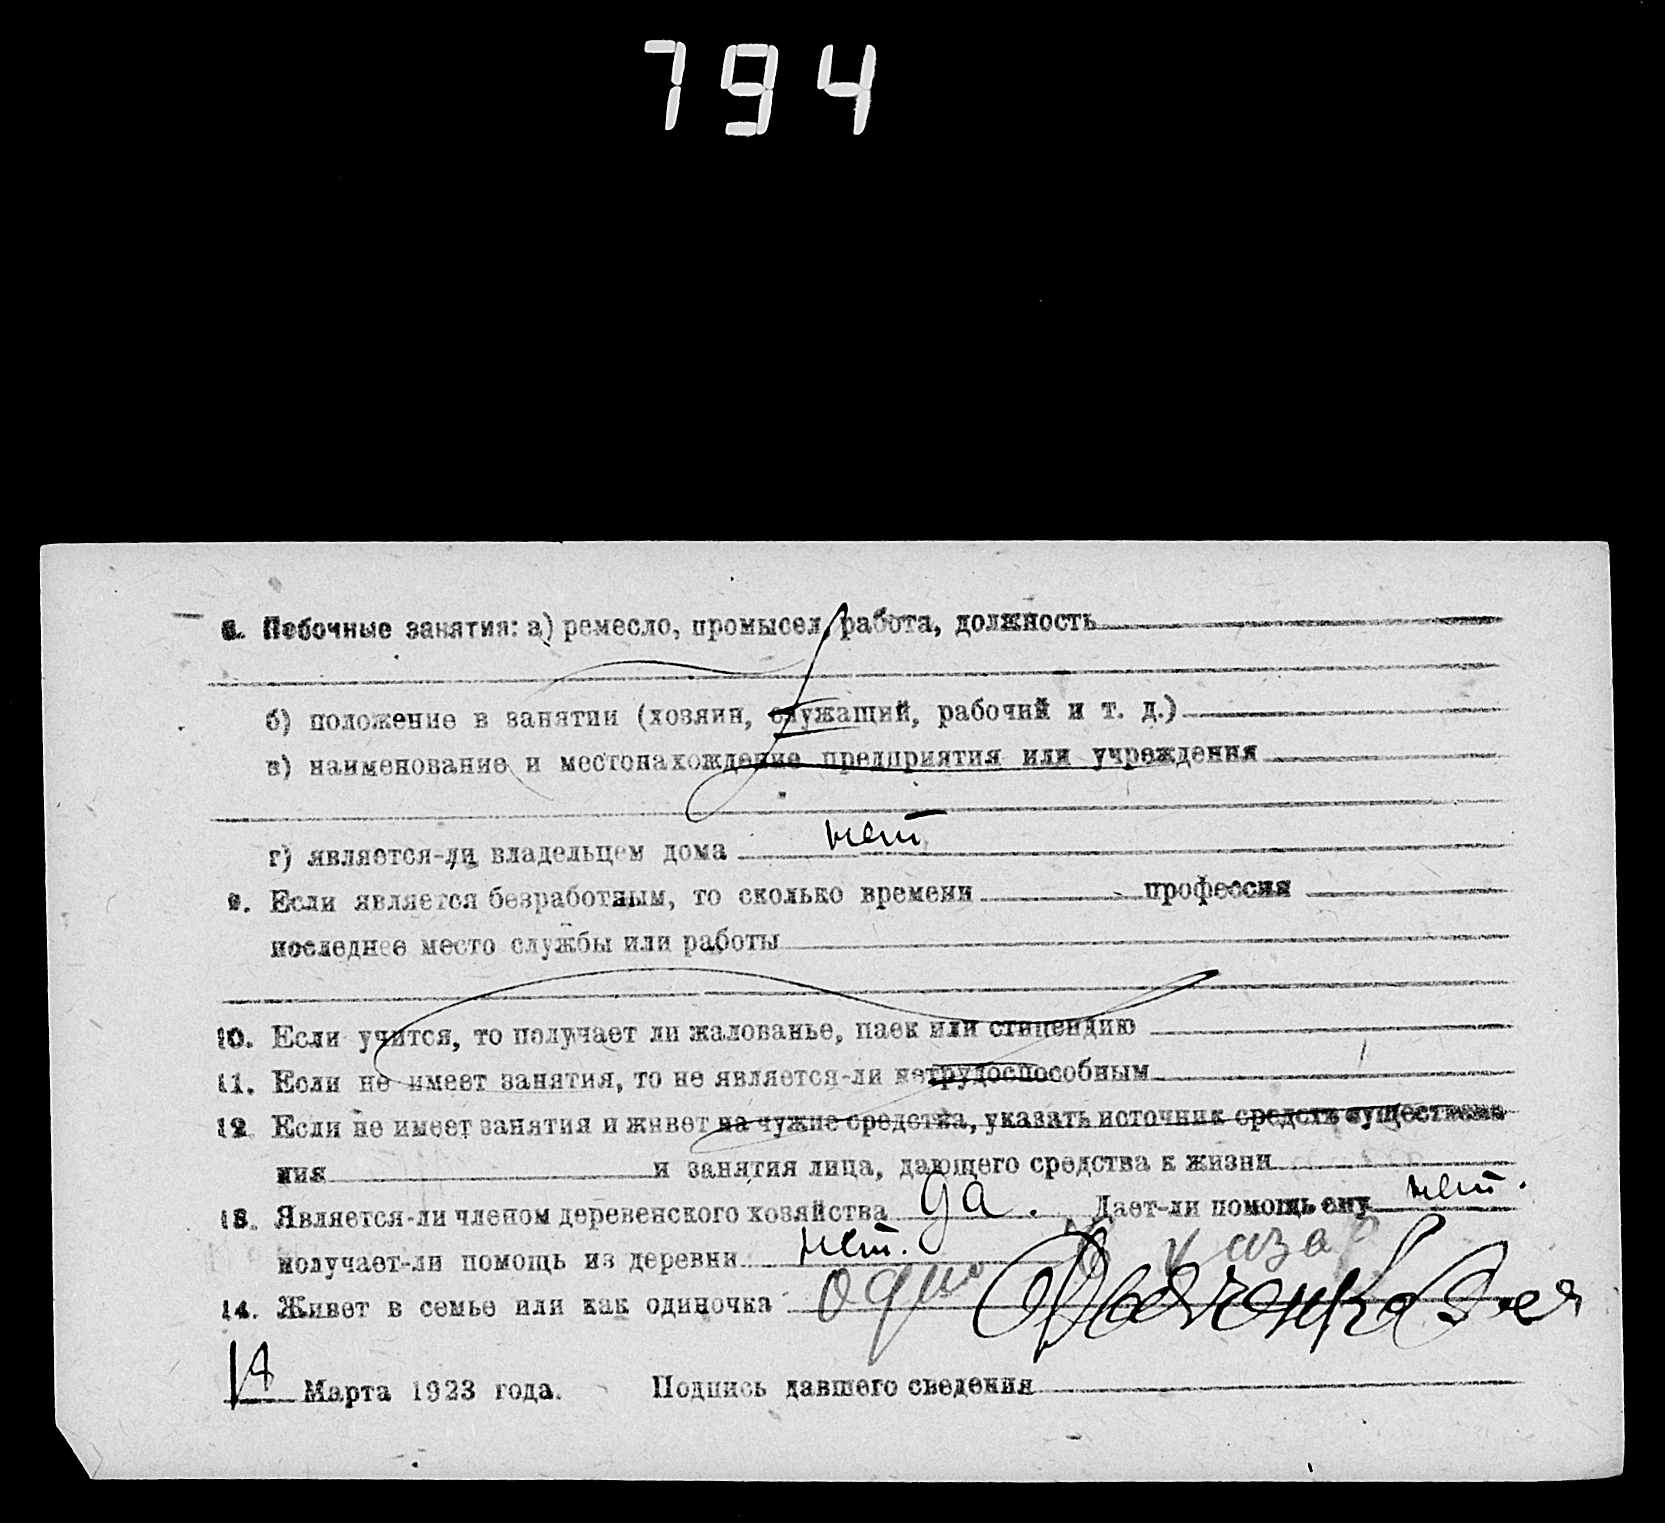 794
8. Побочные занятия: а) ремесло, промысел, работа, должность
б) положение в занятии (хозяин, служащий, рабочий и т. д.)
в) наименование и местонахождение предприятия или учреждения
г) является-ли владельцем дома нет
9. Если является безработным, то сколько времени профессия
последнее место службы или работы
10. Если учится, то получает ли жалованье, паек или стипендию
11. Если не имеет занятия, то не является-ли нетрудоспособным
12 Если не имеет занятия и живет на чужие средства, указать источник средств существова
ния и занятия лица, дающего средства к жизни
13. Является-ли членом деревенского хозяйства да. Дает-ли помощь ему нет.
получает-ли помощь из деревни нет.
14. Живет в семье или как одиночка
Марта 1923 года. Подпись давшего сведения